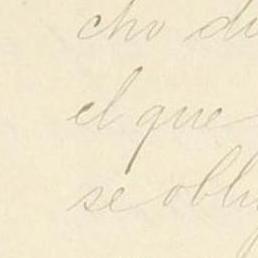 cho di
el que
se obli